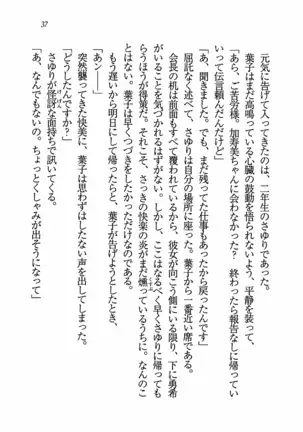 37
元気に告げて入ってきたのは、二年生のさゆりであった。
葉子はまだ高鳴っている心臓の鼓動を悟られないよう、平静を装って
「あら、ご苦労様。加寿美ちゃんに会わなかった？　終わったら報告なしに帰ってい
いって伝言頼んだんだけど」
「あ、聞きました。でも、まだ残ってた仕事もあったから戻ったんです」
屈託なく述べて、さゆりは自分の場所に座った。葉子から一番近い席である。
会長の机は前面もすべて覆われているから、彼女が向こう側にいる限り、下に勇希
がいることを気づかれるはずがない。しかし、ここはなるべく早くさゆりに帰っても
らうほうが得策だ。それこそ、さっきの快楽の炎がまだ燻っているうちに。なんのこ
とはない。葉子は早くつづきをしたかっただけなのである。
もう遅いから明日にして帰ったらと、葉子が告げようとしたとき、
「あンーー」
突然襲ってきた快美に、葉子は思わずはしたない声を出してしまった。
「どうしたんですか？」
さゆりが怪訝な面持ちで訊いてくる。
「あ、なんでもないの。ちょっとくしゃみが出そうになって」